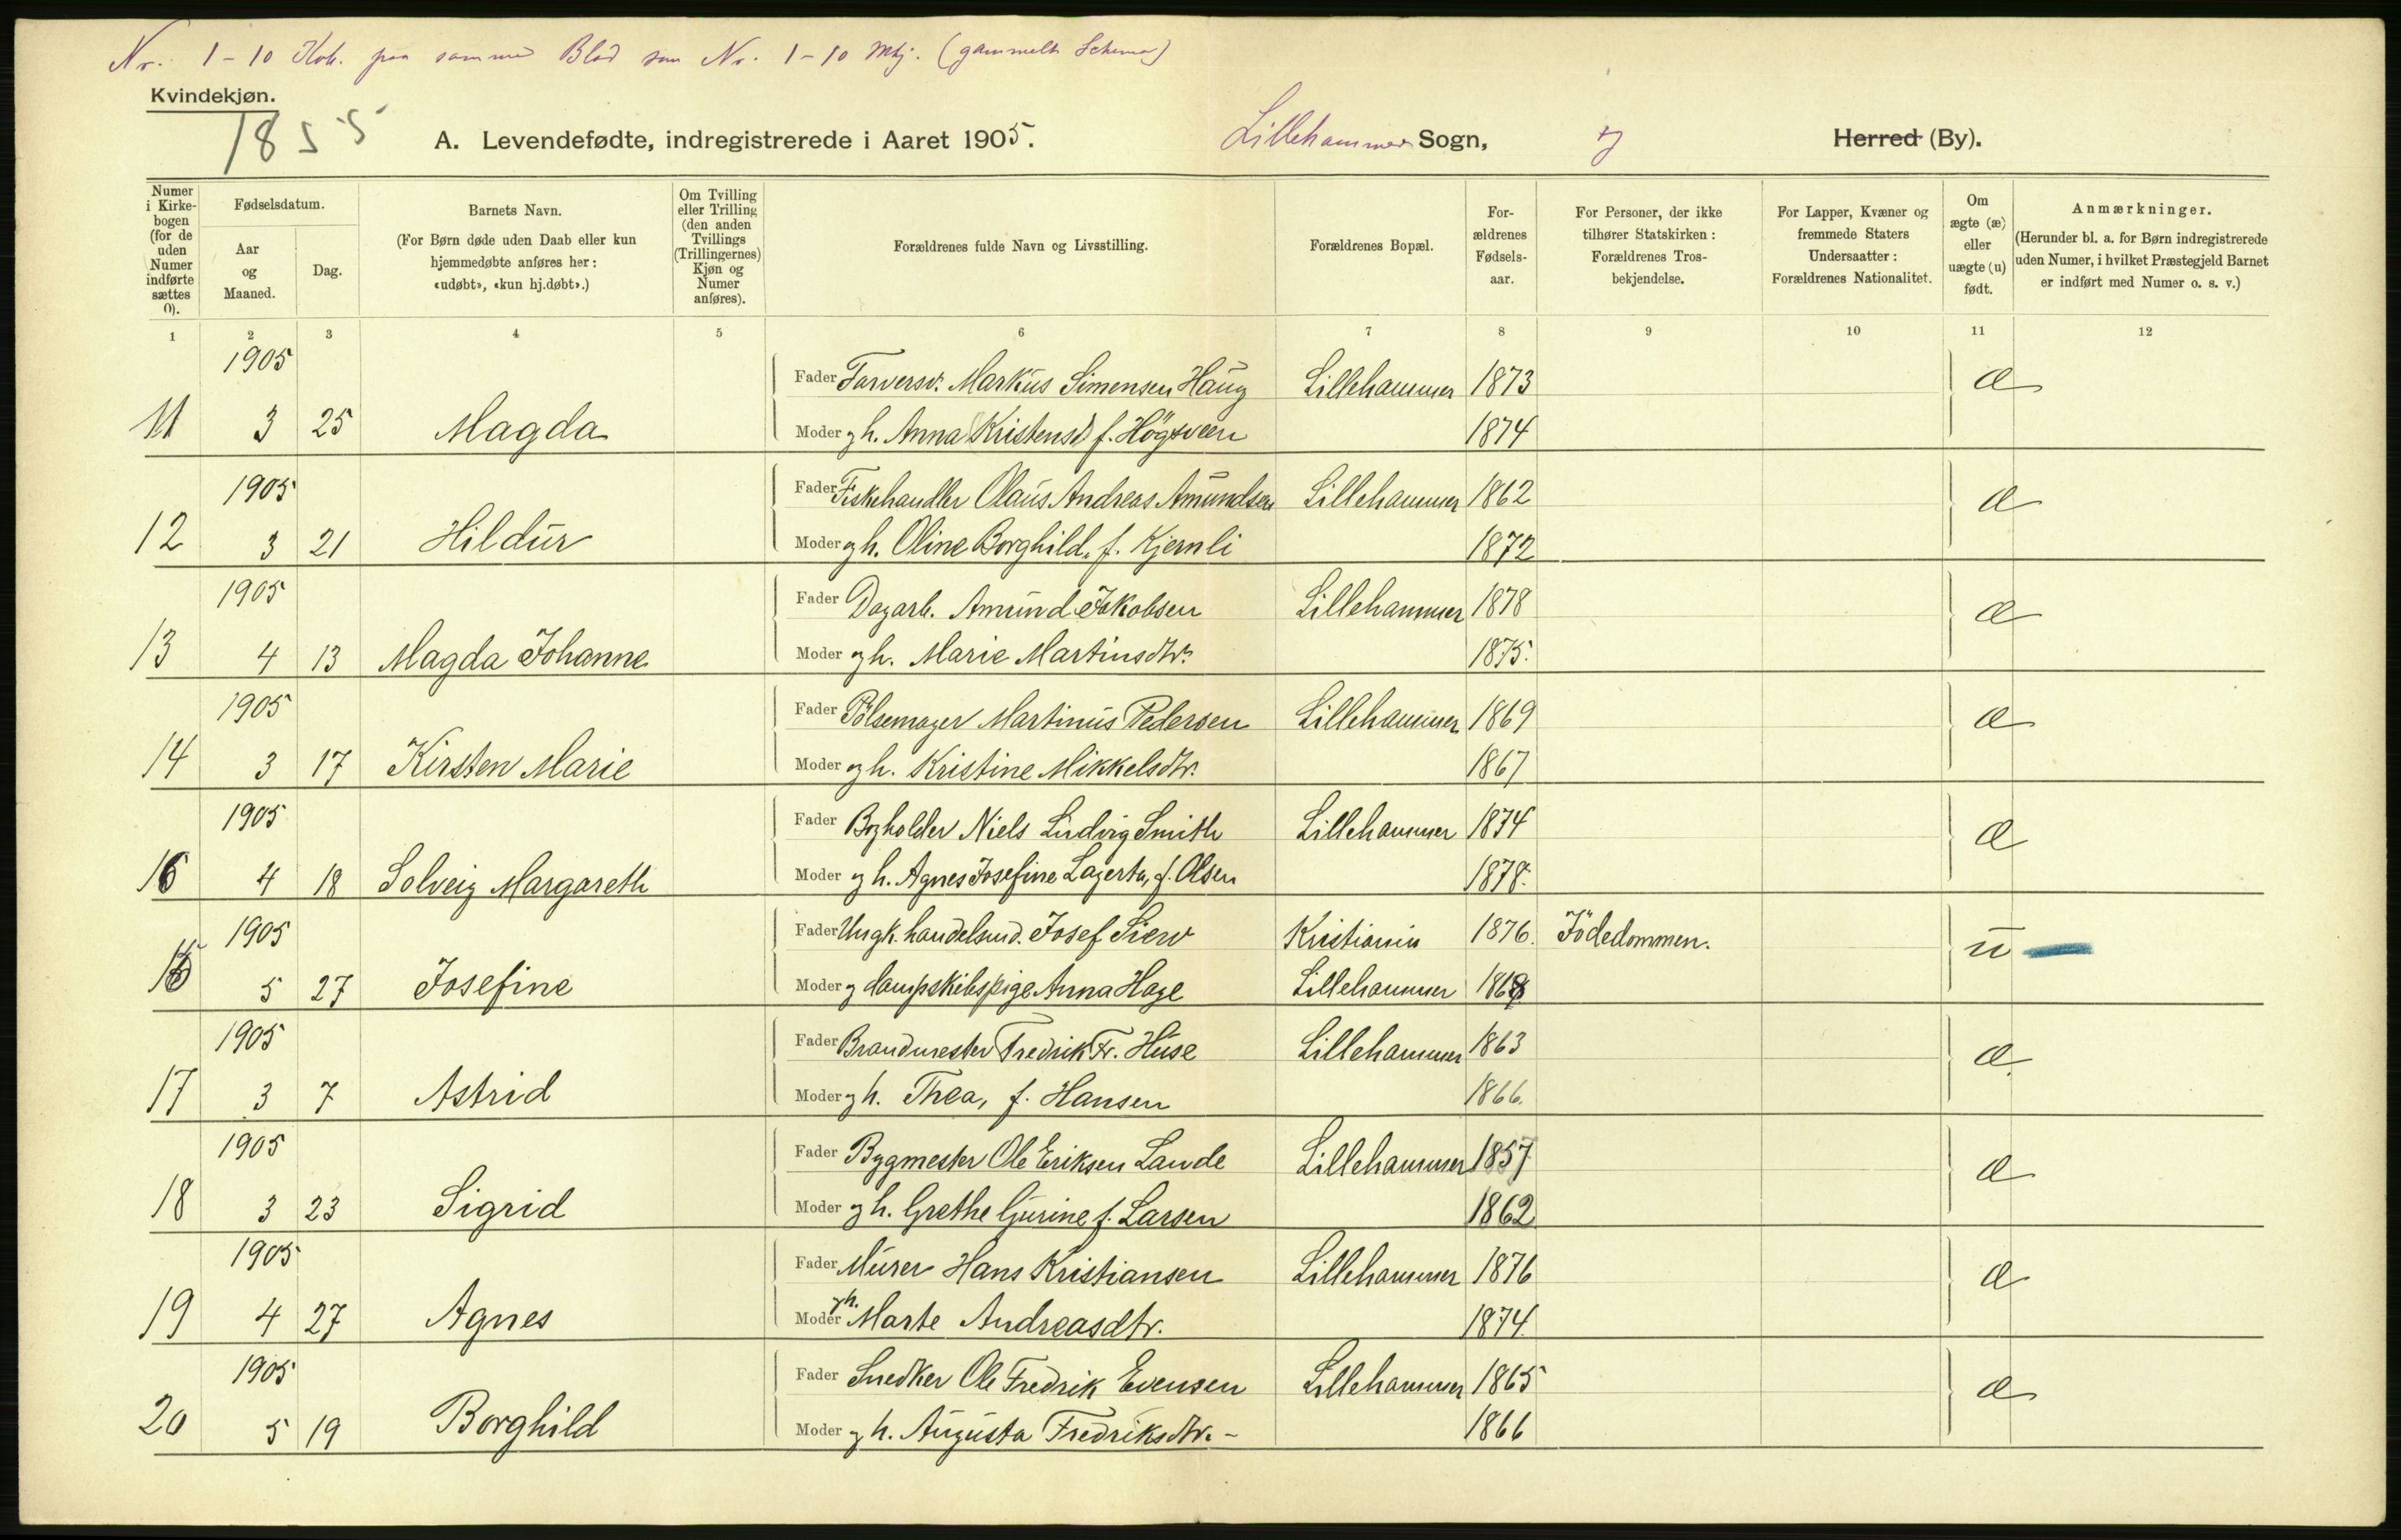 Nr. 1-10 Kvk. paa samme Blad som Nr. 1-10 Mkj. (gammelt Schema)
Kvindekjøn.
1855
A. Levendefødte, indregistrerede i Aaret 1905. Lillehammer Sogn, Herred (By).
Numer i Kirkebogen (for de uden Numer indførte sættes 0).
Fødselsdatum.
Aar og Maaned.
Dag.
Barnets Navn.
(For Børn døde uden Daab eller kun hjemmedøbte anføres her: «udøbt», «kun hj.døbt».)
Om Tvilling eller Trilling (den anden Tvillings (Trillingernes) Kjøn og Numer anføres).
Forældrenes fulde Navn og Livsstilling.
Forældrenes Bopæl.
For-ældrenes Fødsels-aar.
For Personer, der ikke tilhører Statskirken: Forældrenes Tros-bekjendelse.
For Lapper, Kvæner og fremmede Staters Undersaatter: Forældrenes Nationalitet.
Om ægte (æ) eller uægte (u) født.
Anmærkninger.
(Herunder bl. a. for Børn indregistrerede uden Numer, i hvilket Præstegjeld Barnet er indført med Numer o. s. v.)
1 2 3 4 5 6 7 8 9 10 11 12
1905 Fader Farversv. Markus Simensen Haug Lillehammer 1873 æ
11 3 25 Magda Moder gh. Anna Kristensd f. Högsveen 1874
1905 Fader Fiskehandler Olaus Andreas Amundsen Lillehammer 1862 æ
12 3 21 Hildur Moder gh. Oline Borghild, f. Kjernli 1872
1905 Fader Dagarb. Amund Jakobsen Lillehammer 1878 æ
13 4 13 Magda Johanne Moder gh. Marie Martinsdtr. 1875.
1905 Fader Pölsemager Martinus Pedersen Lillehammer 1869 æ
14 3 17 Kirsten Marie Moder gh. Kristine Mikkelsdtr. 1867
1905 Fader Bogholder Niels Ludvig Smith Lillehammer 1874 æ
16 4 18 Solveig Margareth Moder gh. Agnes Josefine Lagerta, f. Olsen 1878.
1905 Fader Ungk. handelsmd. Josef Siew Kristiania 1876. Jödedommen. u
15 5 27 Josefine Moder g dampskibspige Anna Hage Lillehammer 1868
1905 Fader Brandmester Fredrik Fr. Huse Lillehammer 1863 æ
17 3 7 Astrid Moder gh. Thea, f. Hansen 1866.
1905 Fader Bygmester Ole Eriksen Lande Lillehammer 1857 æ
18 3 23 Sigrid Moder gh. Grethe Gurine f. Larsen 1862
1905 Fader Murer Hans Kristiansen Lillehammer 1876 æ
19 4 27 Agnes Moder gh. Marte Andreasdtr. 1874.
1905 Fader Snedker Ole Fredrik Evensen Lillehammer 1865 æ
20 5 19 Borghild Moder gh. Augusta Fredriksdtr. - 1866